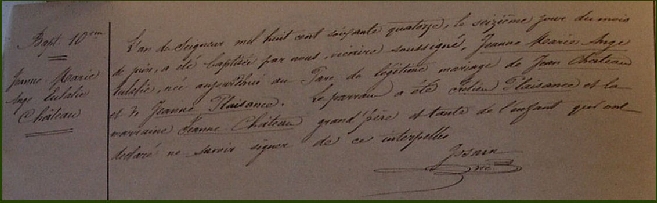 Bapt. 10ème
Jeanne Marie
Ange Eulalie
Château
L'an du Seigneur mil huit cent soixante quatorze, le seizième jour du mois
de juin, a été baptisée par nous, vicaire soussigné, Jeanne Marie Ange
Eulalie, née au Parc du légitime mariage de Jean Château
et de Jeanne Plaisance. Le parrain a été Plaisance et la
marraine Jeanne Château grand père et tante de l'enfant qui ont
déclaré ne savoir signer de ce interpellés
vic